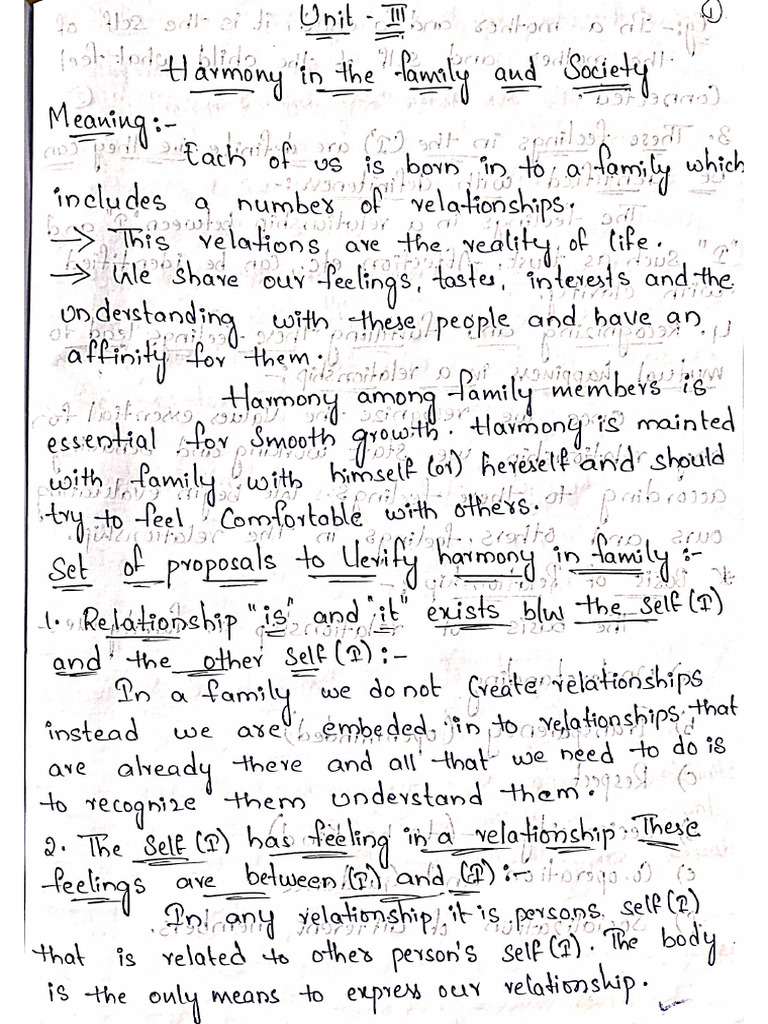 Unit - III
1
Harmony in the family and Society
Meaning :-
Each of us is born in to a family which
includes a number of relationships.
→ This relations are the reality of life.
→ We share our feelings, tastes, interests and the
understanding with these people and have an
affinity for them.
Harmony among family members is
essential for smooth growth. Harmony is mainted
with family with himself (or) hereself and should
try to feel comfortable with others.
Set of proposals to Verify harmony in family :-
1. Relationship "is" and "it" exists b/w the self (I)
and the other self (I) :-
In a family we do not create relationships
instead we are embeded in to relationships that
are already there and all that we need to do is
to recognize them understand them.
2. The Self (I) has feeling in a relationship These
feelings are between (I) and (I) :-
In any relationship it is persons self (I)
that is related to other person's self (I). The body
is the only means to express our relationship.